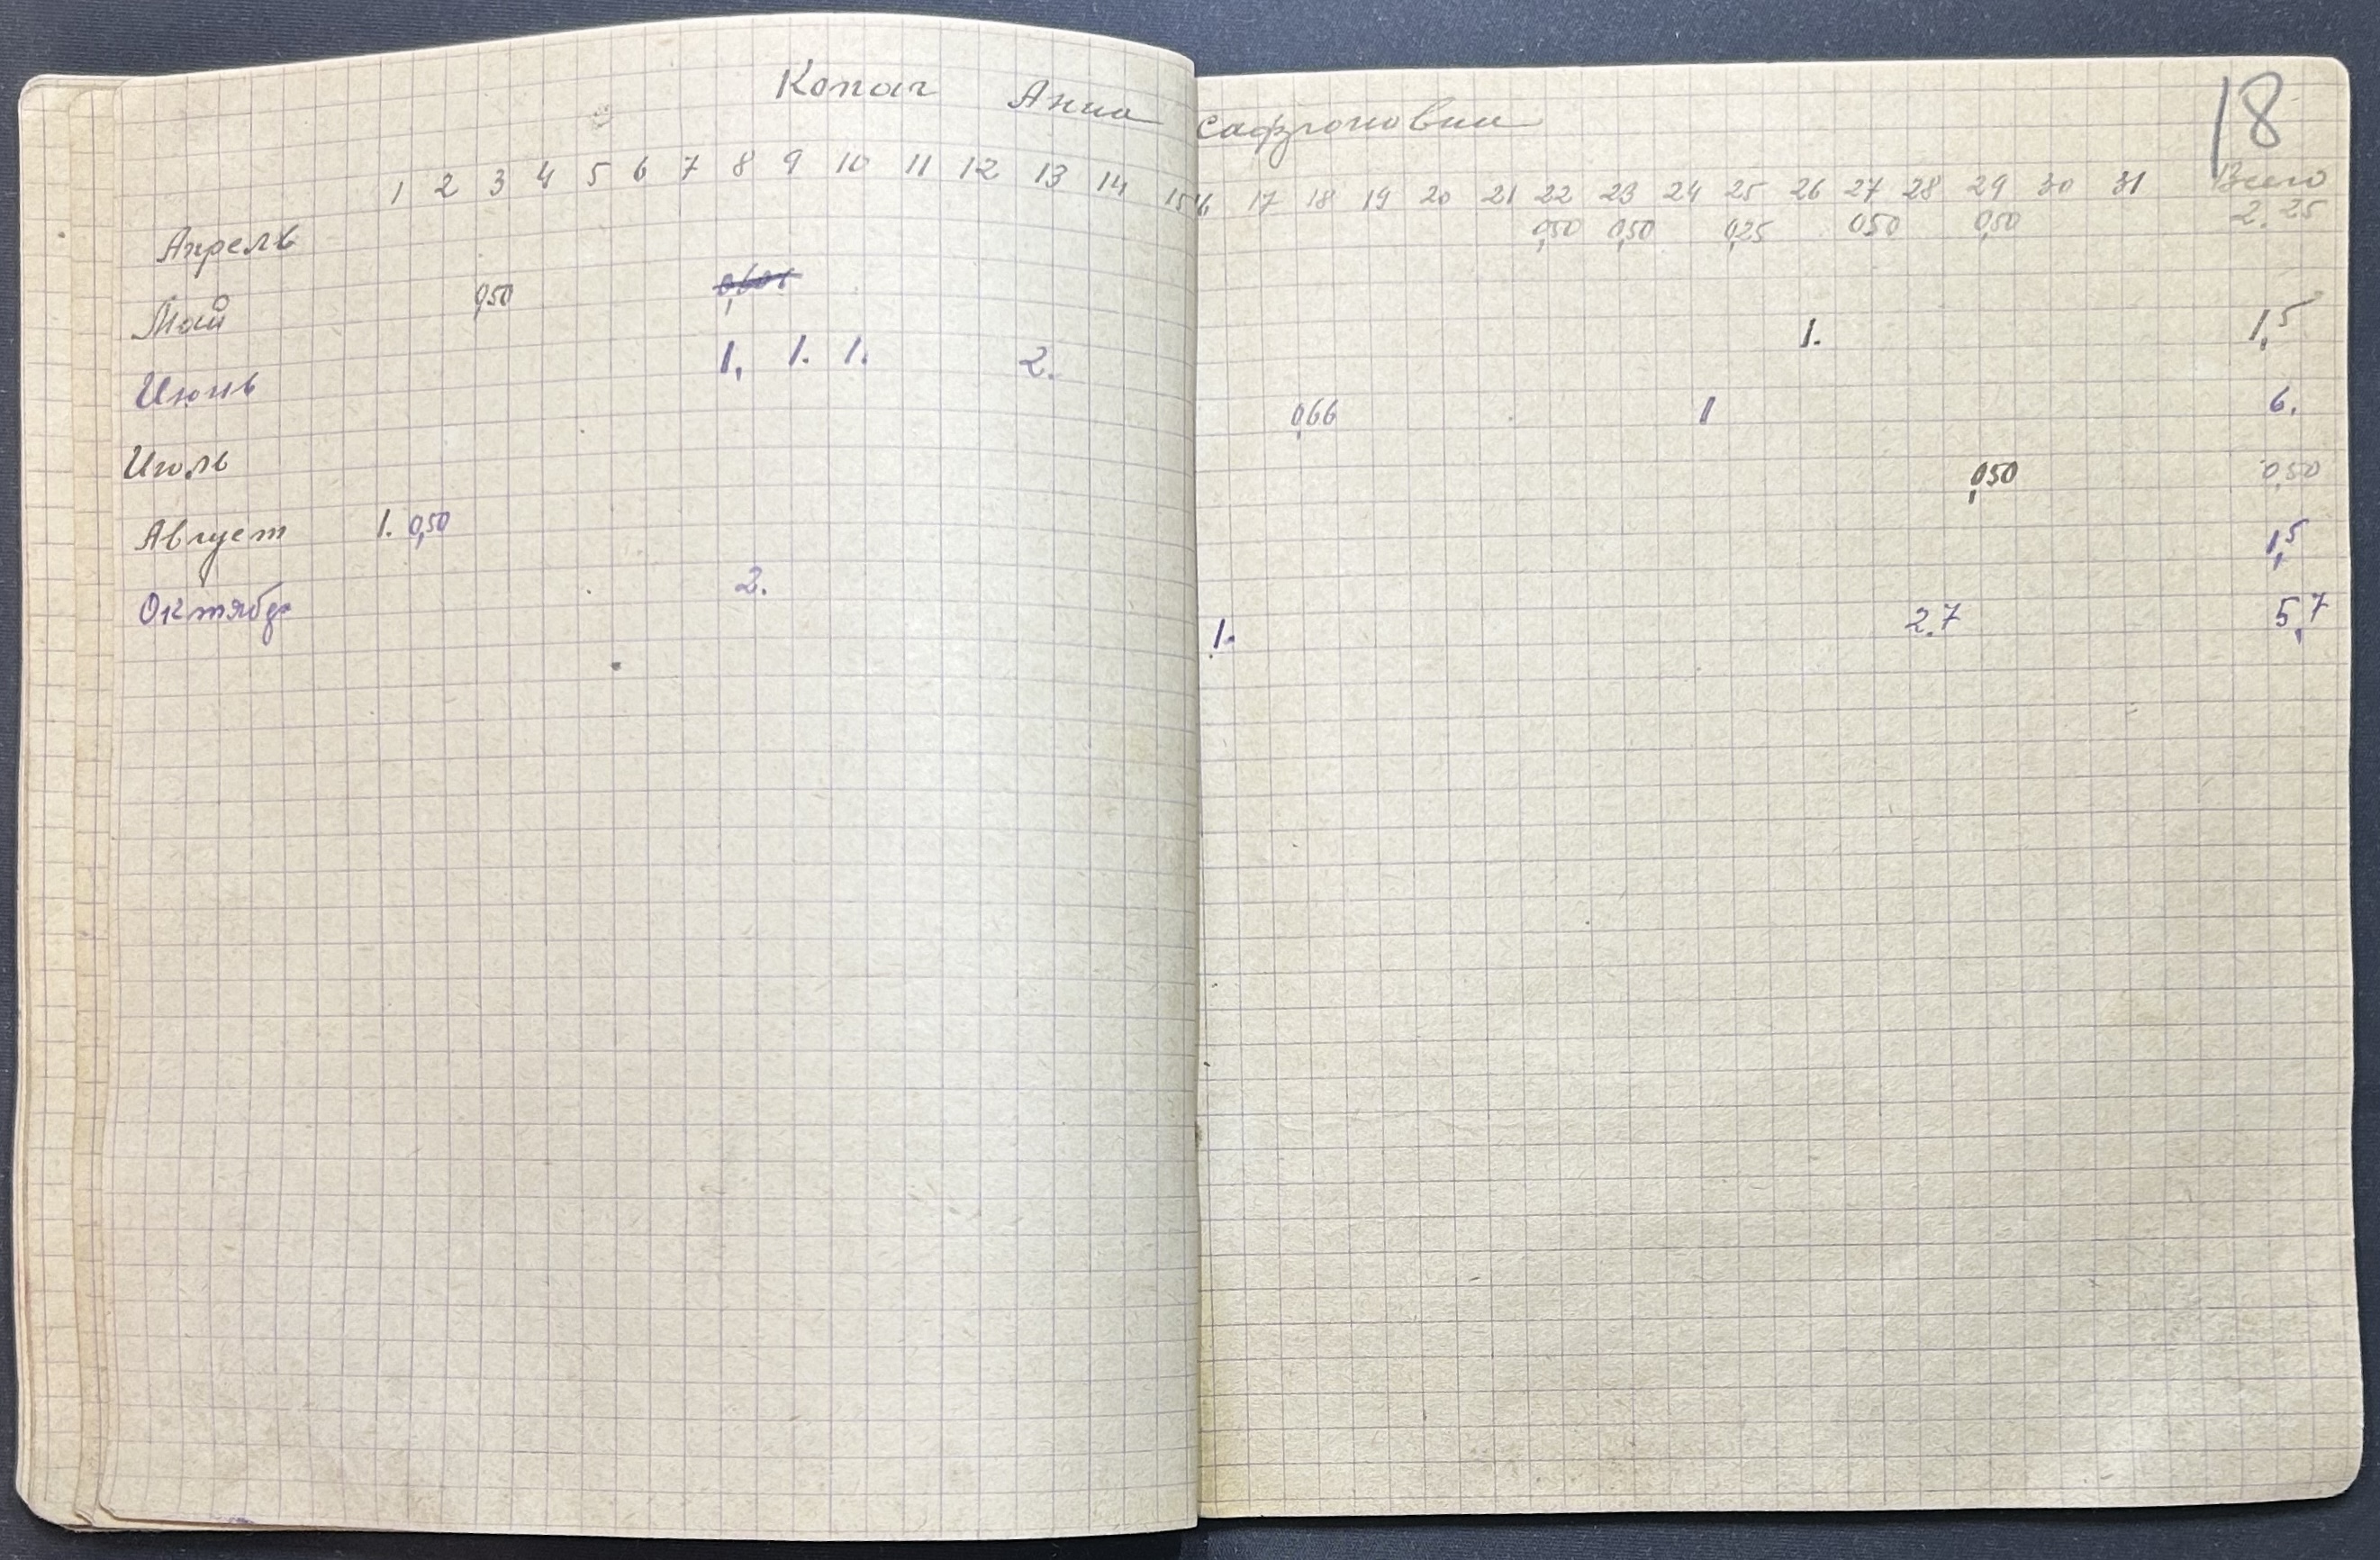 18
Копач Анна сафроновна
1 2 3 4 5 6 7 8 9 10 11 12 13 14 15 16 17 18 19 20 21 22 23 24 25 26 27 28 29 30 31 Всего
Апрель 0,50 0,50 0,25 0,50 0,50 2.25
Май 0,50 1. 1,5
Июнь 1, 1. 1. 2. 0,66 1 6.
Июль 0,50 0,50
Август 1. 0,50 1,5
Октябр 2. 1. 2.7 5,7